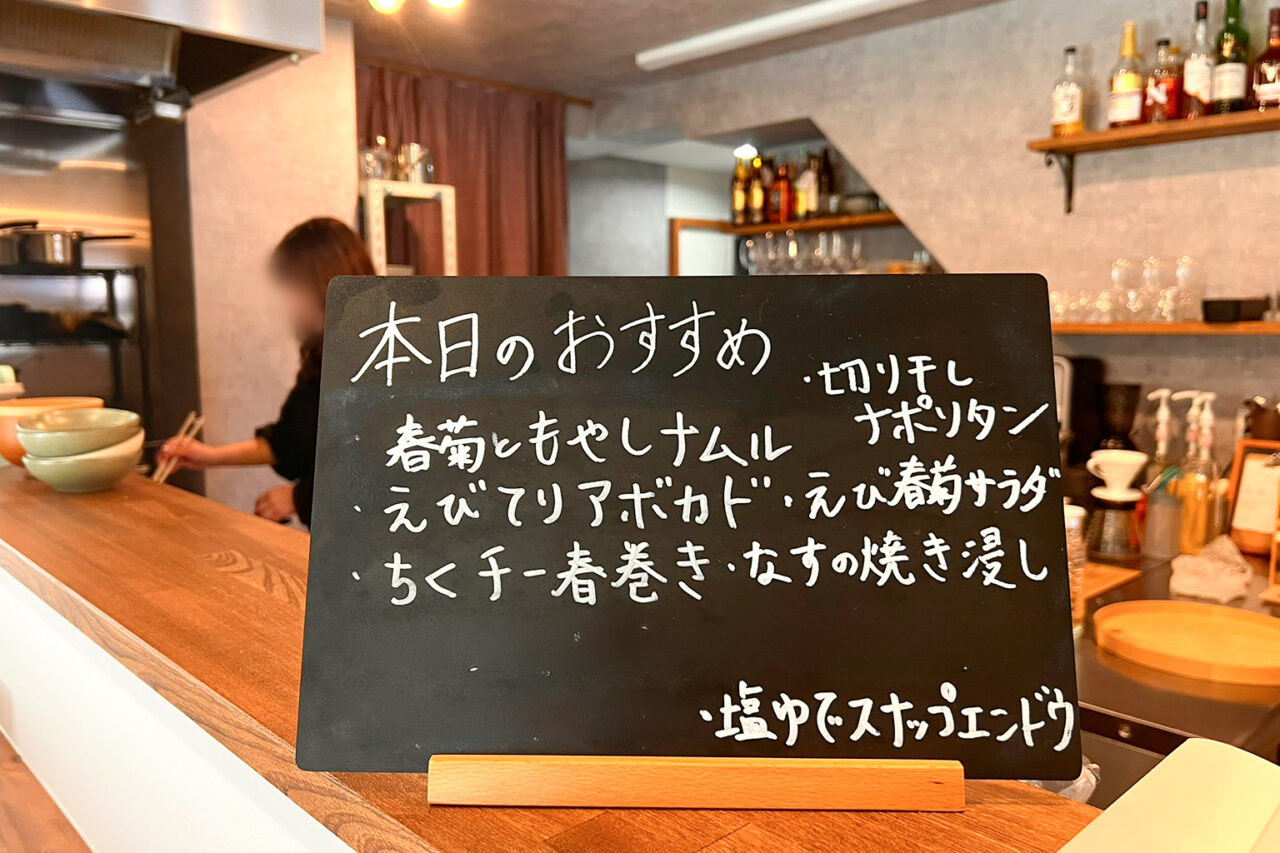 本日のおすすめ
・切り干し
ナポリタン
春菊ともやしナムル
・えびてりアボカド・えび春菊サラダ
・ちくチー春巻き・なすの焼き浸し
・塩ゆでスナップエンドウ